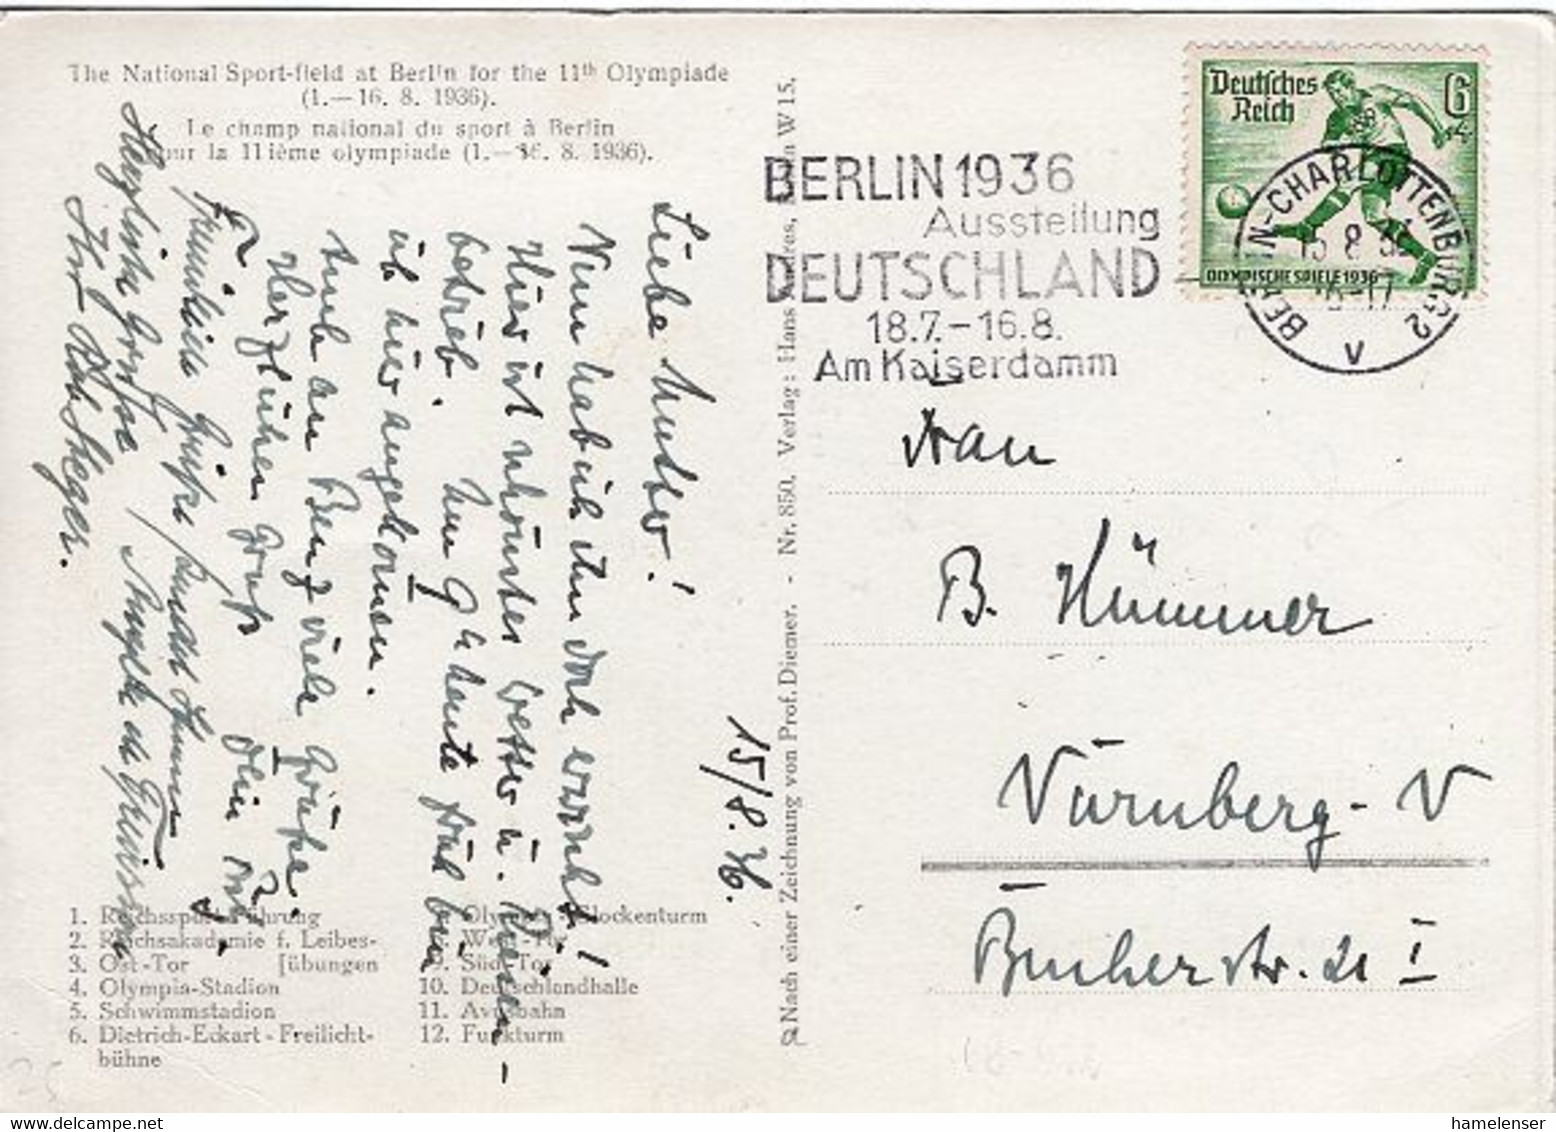 The National Sport-field at Berlin for the 11th Olympiade
(1.—16. 8. 1936).
Le champ national du sport à Berlin
pour la 11ième olympiade (1.—16. 8. 1936).
Liebe Mutter!
Nun hab ich ihn doch erwischt!
Hier ist schönstes Wetter u. Riesen-
betrieb. Um 9 h heute früh bin
ich hier angekommen.
Auch an Benz viele Grüße.
Herzlichen Gruß Dein
Herzliche Grüße
15/8.36.
1. Reichssportführung
2. Reichsakademie f. Leibes-
3. Ost-Tor [übungen
4. Olympia-Stadion
5. Schwimmstadion
6. Dietrich-Eckart-Freilicht-
bühne
Olympia-Glockenturm
West-Tor
9. Süd-Tor
10. Deutschlandhalle
11. Avusbahn
12. Funkturm
Nach einer Zeichnung von Prof. Diemer. - Nr. 850. Verlag: Hans Andres, Berlin W 15.
BERLIN 1936
Ausstellung
DEUTSCHLAND
18.7.-16.8.
Am Kaiserdamm
Deutsches
Reich
6
+4
OLYMPISCHE SPIELE 1936
BERLIN-CHARLOTTENBURG 2
15 8 36
16-17
v
Frau
B. Hümmer
Nürnberg-V
Bucherstr. 21 I
hamelenser